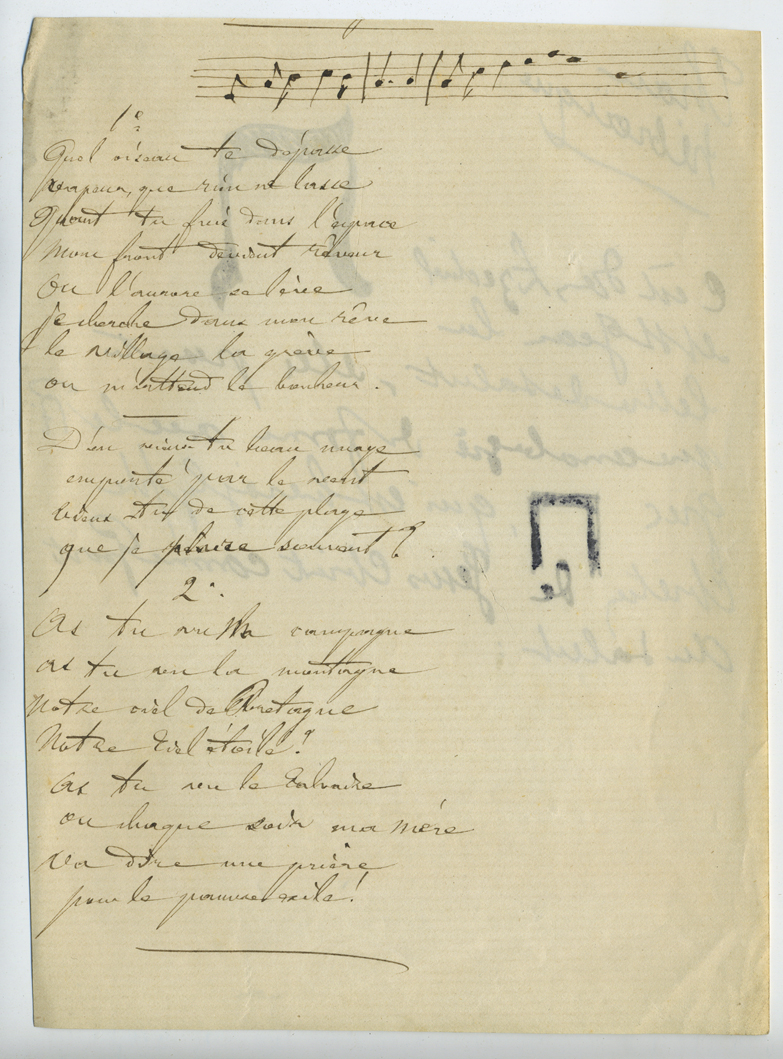 1º
Quel oiseau te dépasse
vapeur, que rien ne lasse
Quant tu fuis dans l'espace
mon front devient rêveur
Ou l'aurore se lève
je cherche dans mon rêve
le village la grève
ou m'attend le bonheur.
D'en viens-tu beau nuage
emporté par le vent
viens tu de cette plage
que je pleure souvent?
2º.
As tu vu Ma campagne
as tu vu la montagne
Notre ciel de Bretagne
Notre Ciel étoilé!
as tu vu le Calvaire
ou chaque soir ma Mère
va dire une prière
pour le pauvre exilé!